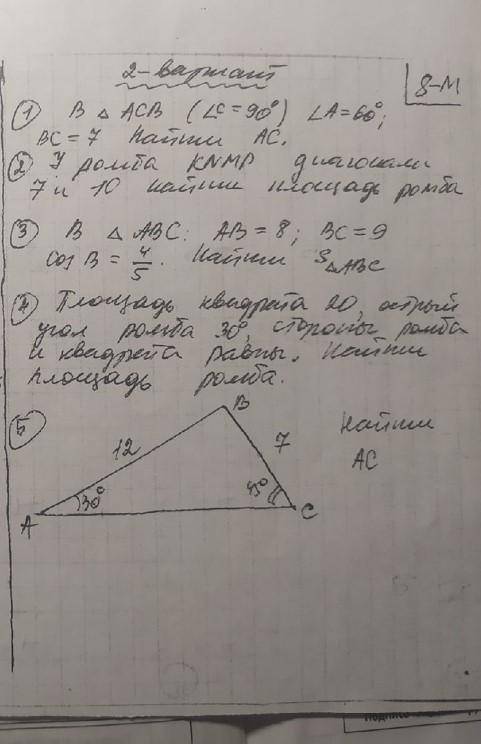 2-вариант
8-М
① В △ ACB (∠C = 90°) ∠A = 60°;
BC = 7 Найти AC.
② У ромба KNMP диагонали
7 и 10 найти площадь ромба
③ В △ ABC: AB = 8; BC = 9
cos B = 4/5. Найти S△ABC
④ Площадь квадрата 20, острый
угол ромба 30°, стороны ромба
и квадрата равны. Найти
площадь ромба.
⑤
B
12
7
Найти
AC
30°
45°
A
C